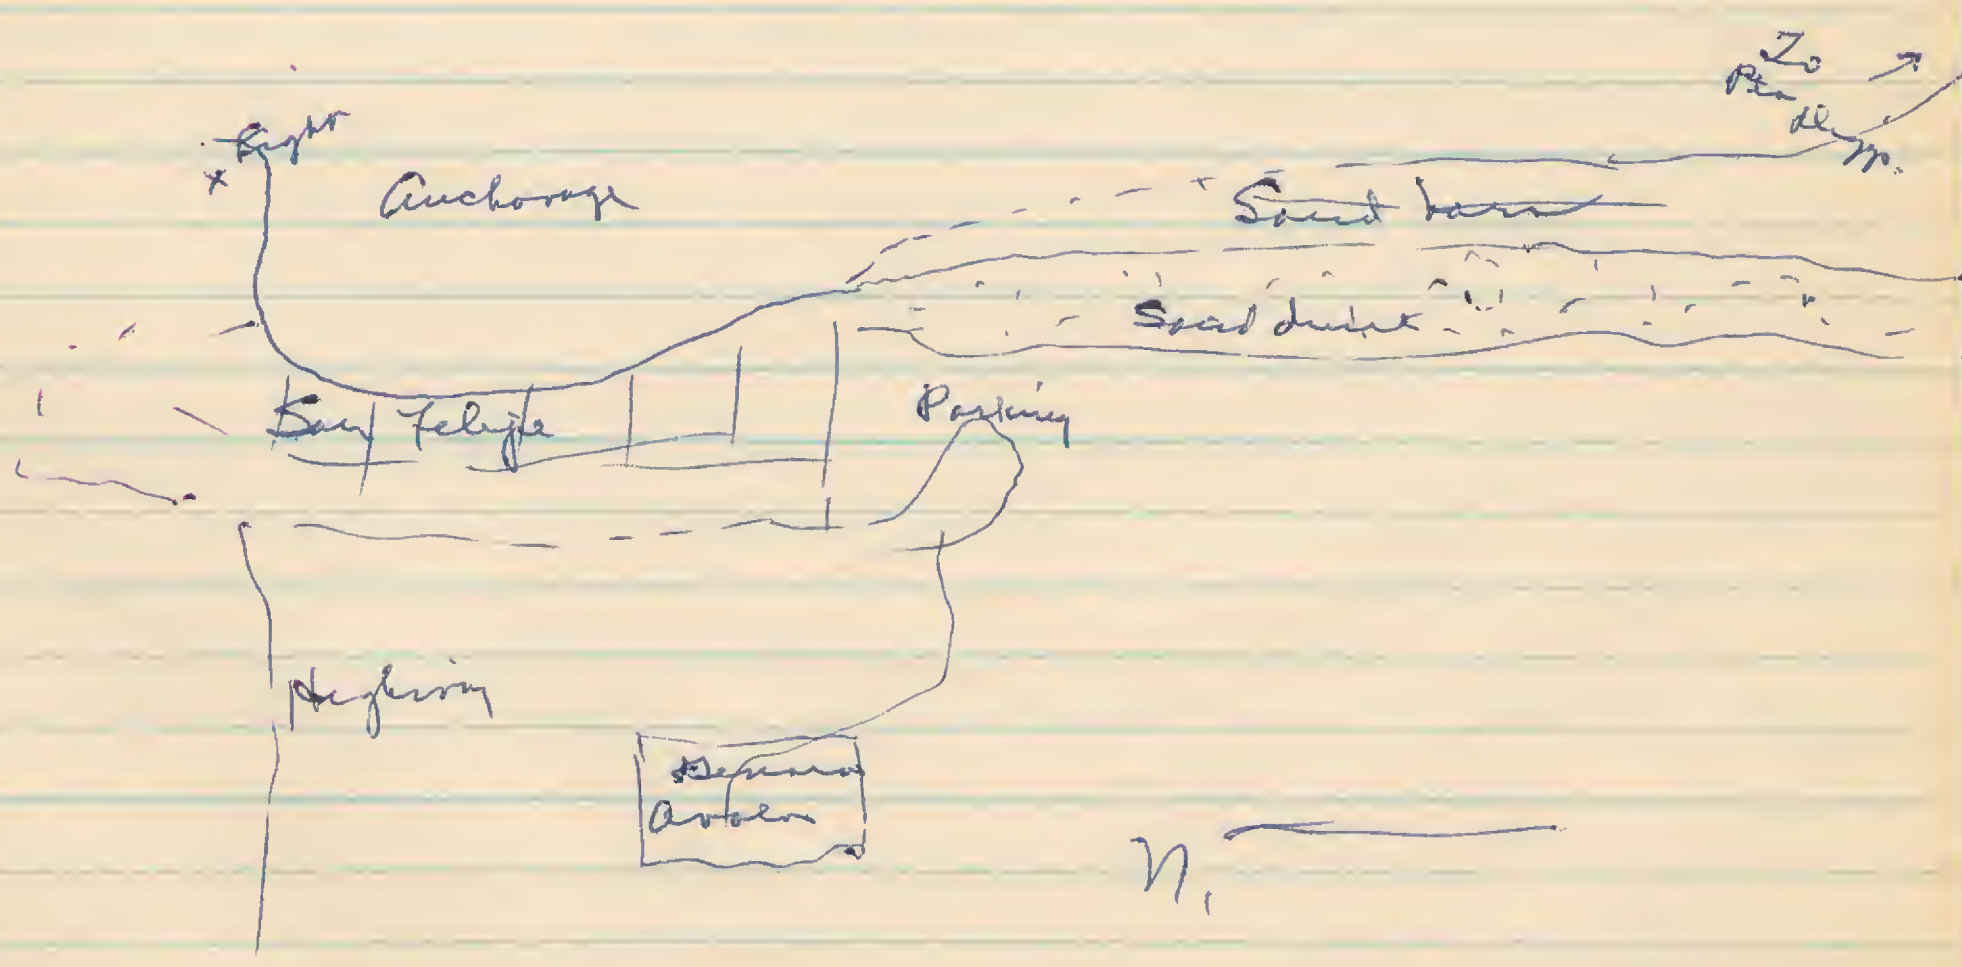 To
Light
Anchorage
Sand barr
Sand dunes
San Felipe
Parking
Highway
N.